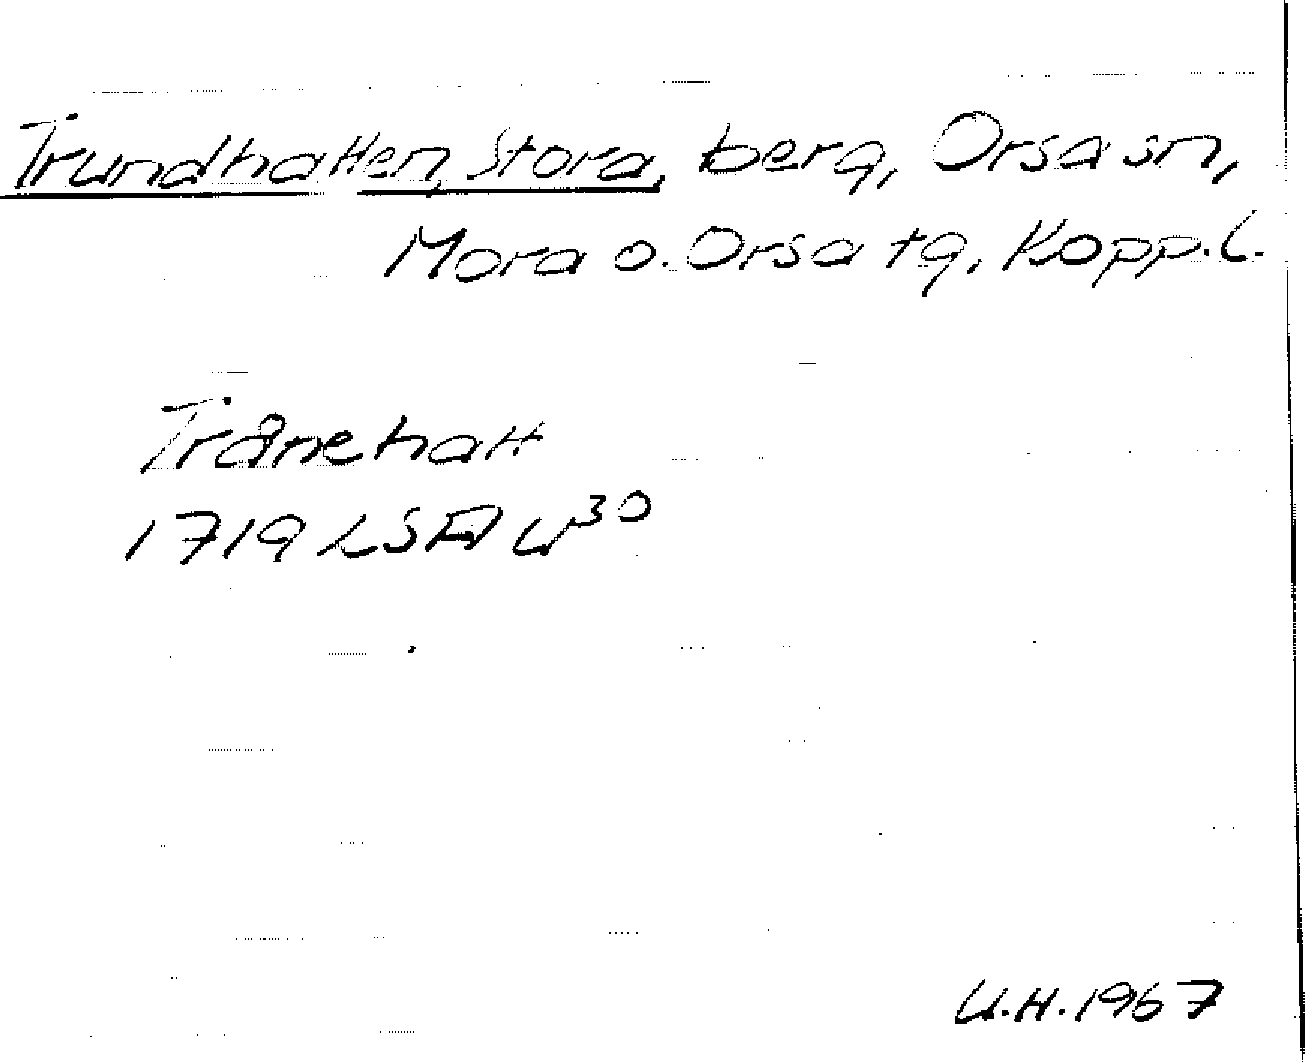 Trundhatten, Stora, berg, Orsa sn,
Mora o. Orsa tg, Kopp. l.
Trånehatt
1719 LSA W30
U.H. 1967